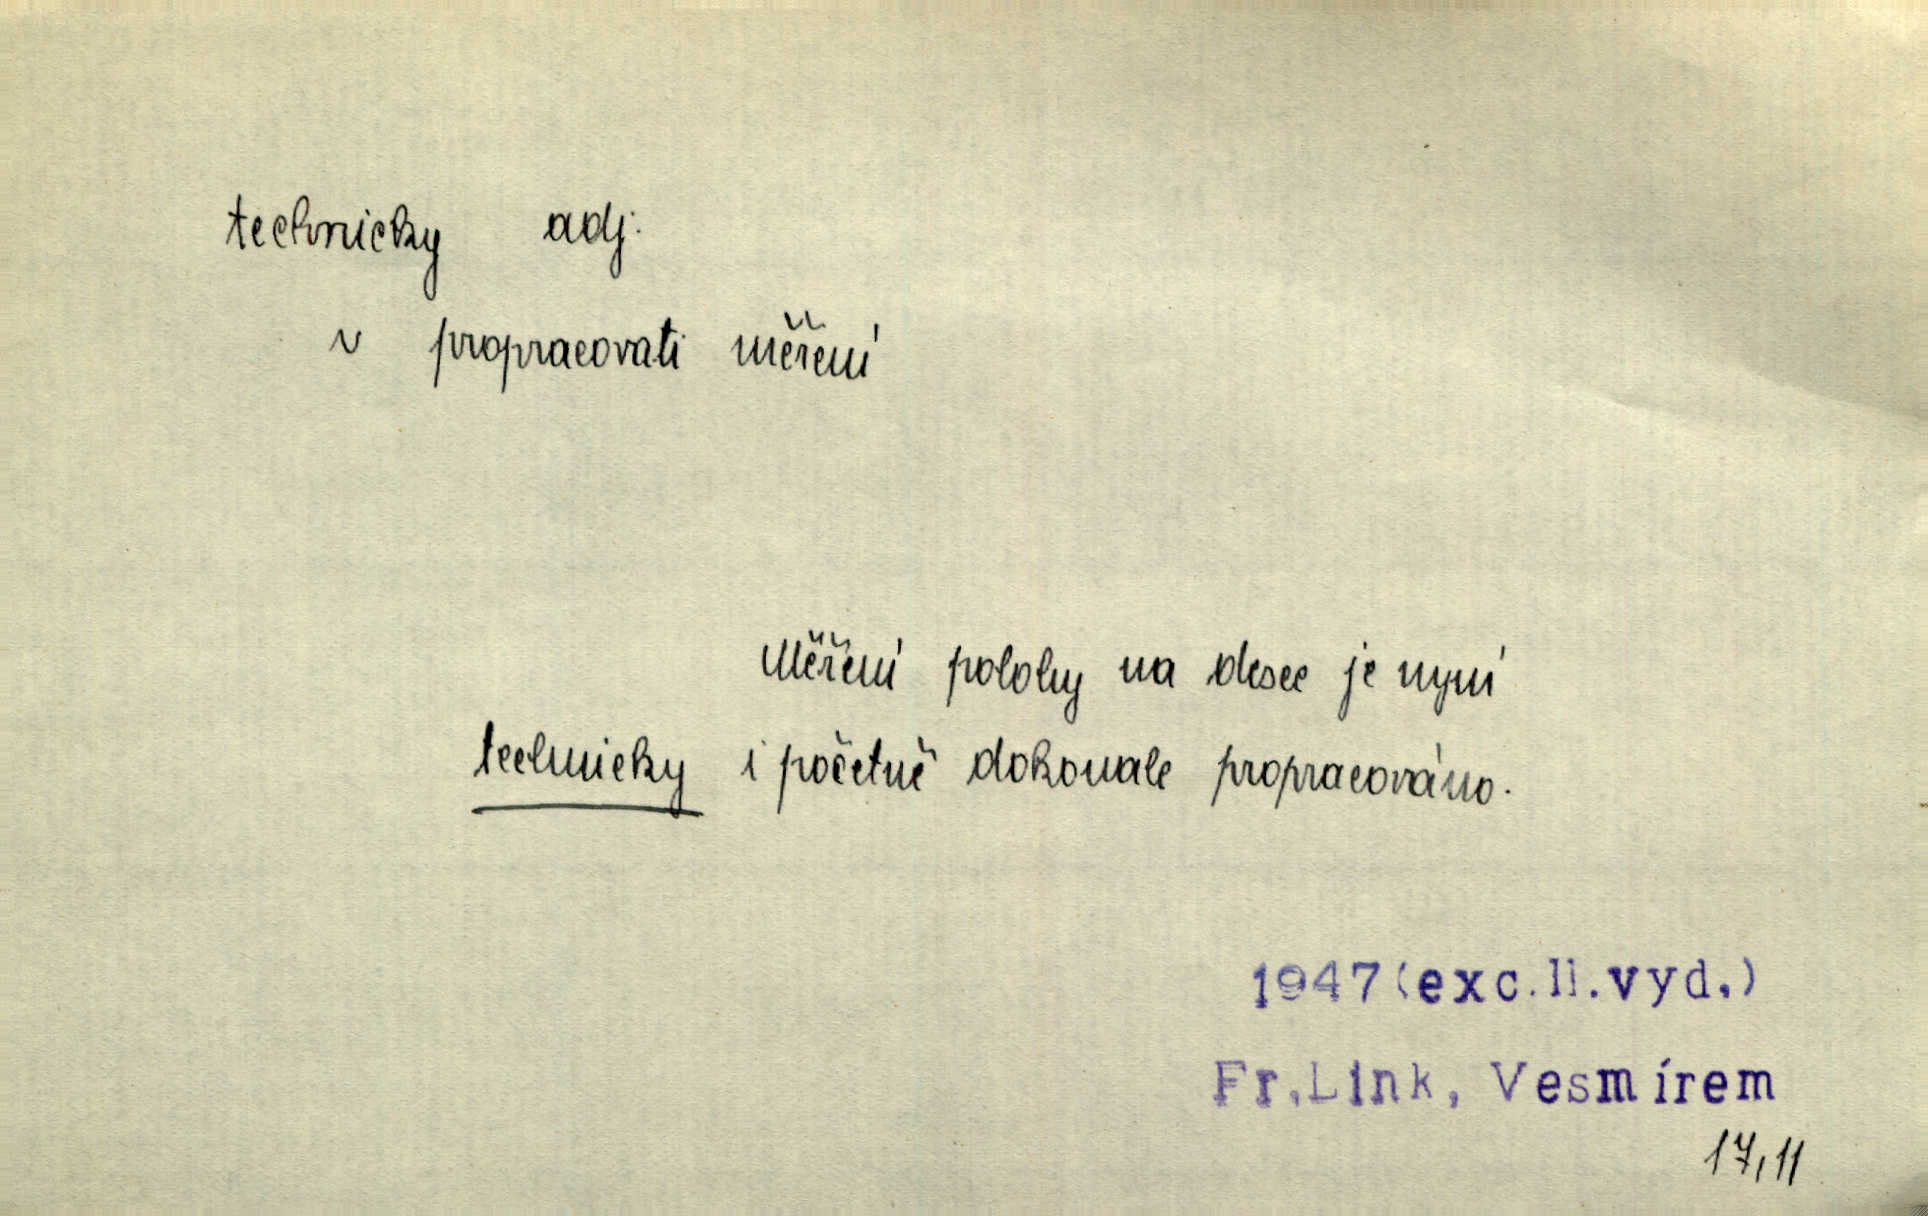 technicky adj.
~ propracovati měření
Měření polohy na desce je nyní
technicky i početně dokonale propracováno.
1947(exc.II.vyd.)
Fr.Link, Vesmírem
17,11